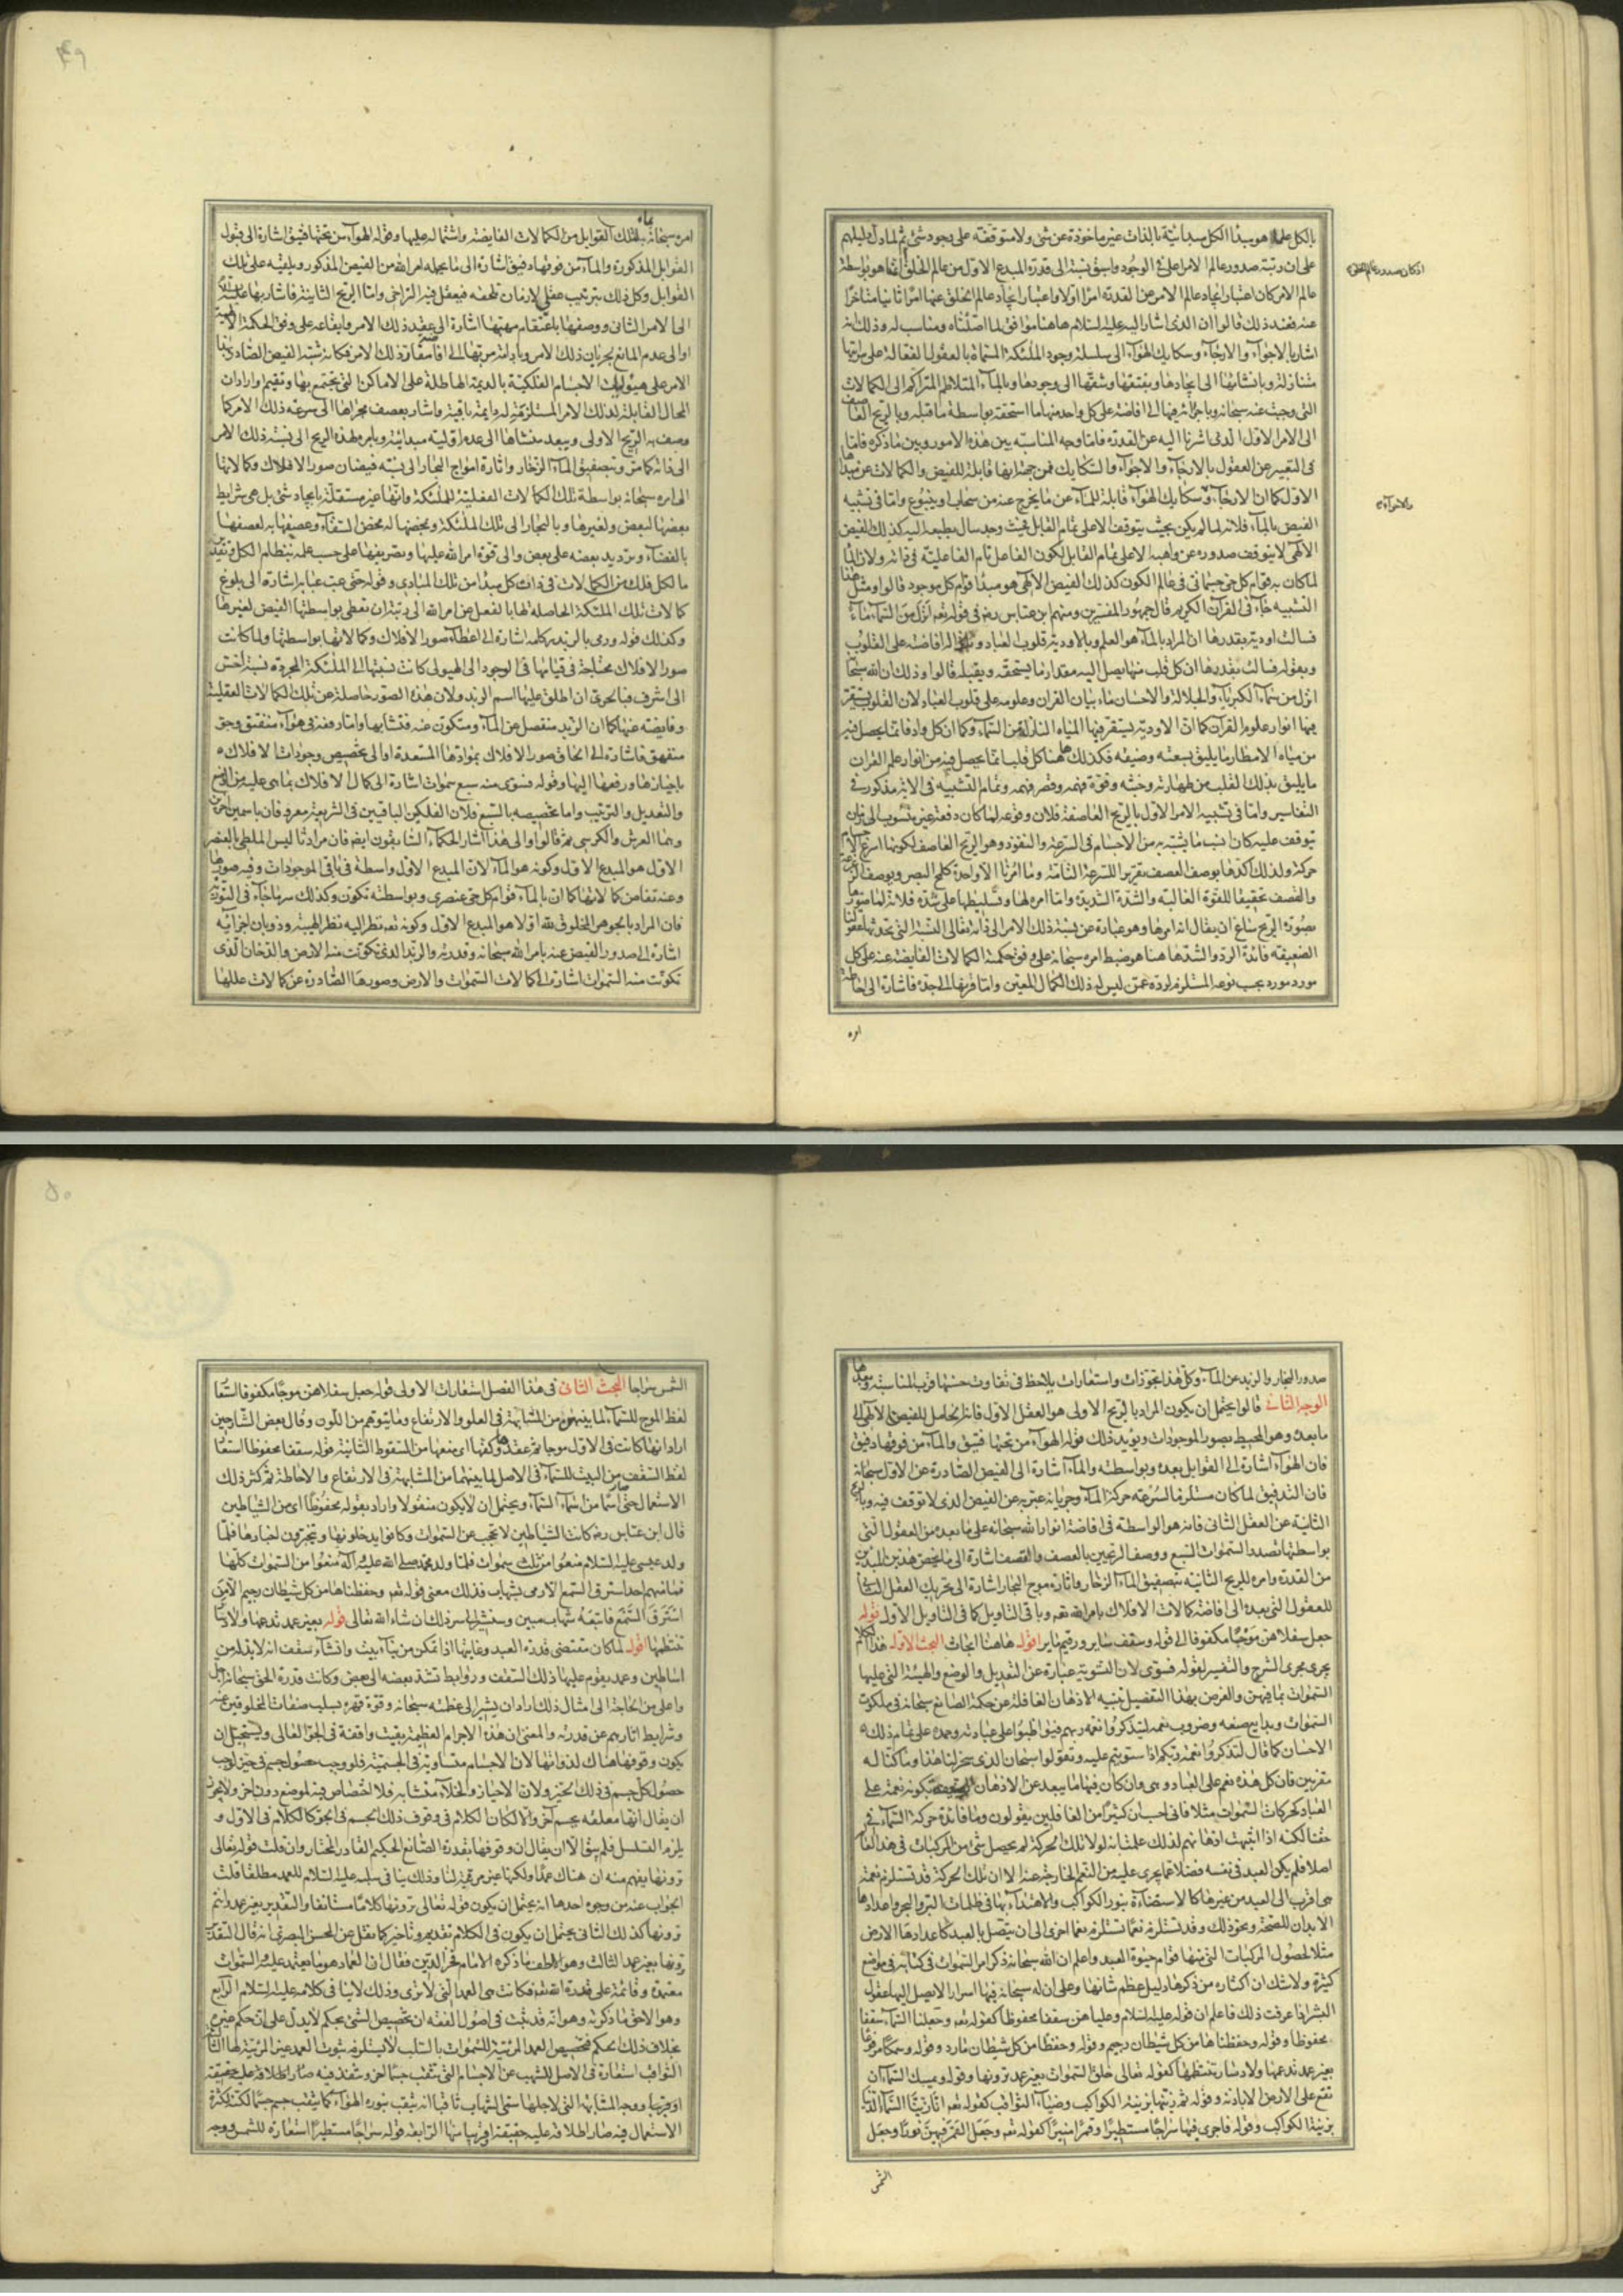 بالكل علما هو مبدا الكل مبدائية بالذات غير ماخوذة عن شئ ولا متوقفة على وجود شئ ثم لما دل دليلهم
على ان رتبة صدور عالم الامر اعلى فى الوجود واسبق نسبة الى قدرة المبدع الاول من عالم الخلق انما هو بواسطة
اذ كان صدور عالم الخلق
عالم الامر كان اعتبار ايجاد عالم الامر عن القدرة امرا اولا واعتبار ايجاد عالم الخلق عنها امرا ثانيا متاخرا
عنه فعند ذلك قالوا ان الذى اشار اليه عليه السلام هاهنا موافق لما اصلناه ومناسب له وذلك انه
اشار بالاجواء والارجاء وسكايك الهواء الى سلسلة وجود الملئكة المسماة بالعقول الفعالة على مراتبها
متنازلة وبانشائها الى ايجادها وبفتقها وشقها الى وجودها وبالماء المتلاطم المتراكم الى الكمالات
التى وجبت عنه سبحانه وباجرائه فيها الى افاضته على كل واحد منها ما استحقه بواسطة ما قبله وبالريح العاصف
الى الامر الاول الذى اشرنا اليه عن القدرة فاما وجه المناسبة بين هذه الامور وبين ما ذكره فاما
فى التعبير عن العقول بالارجاء والاجواء والسكايك فمن جهة انها قابلة للفيض والكمالات عن مبدئها
الاول كما ان الارجاء وسكايك الهواء قابلة للماء عن ما يخرج عنه من سحاب او ينبوع واما فى تشبيه
والاجواء
الفيض بالماء فلانه لما لم يكن بحيث يتوقف الا على تمام القابل فحيث وجد سال بطبعه اليه كذلك الفيض
الالهى لا يتوقف صدوره عن واهبه الا على تمام القابل لكون الفاعل تام الفاعلية فى ذاته ولان الماء
لما كان به قوام كل حى جسمانى فى عالم الكون كذلك الفيض الالهى هو مبدا قوام كل موجود قالوا ومثل هذا
التشبيه جاء فى القران الكريم قال جمهور المفسرين ومنهم ابن عباس رضه فى قوله تعم انزل من السماء ماء
فسالت اودية بقدرها ان المراد بالماء هو العلم وبالاودية قلوب العباد وبانزاله افاضته على القلوب
وبقوله فسالت بقدرها ان كل قلب منها يصل اليه مقدار ما يستحقه ويقبله قالوا وذلك ان الله سبحا
انزل من سماء الكبرياء والجلالة والاحسان ماء بيان القران وعلومه على قلوب العباد لان القلوب يستقر
فيها انوار علوم القران كما ان الاودية يستقر فيها المياه النازلة من السماء وكما ان كل واد فانما يحصل فيه
من مياه الامطار ما يليق بسعته وضيقه فكذلك هاهنا كل قلب انما يحصل فيه من انوار علوم القران
ما يليق بذلك القلب من طهارته وخبثه وقوة فهمه وقصر فهمه وتمام التشبيه فى الاية مذكور فى
التفاسير واما فى تشبيه الامر الاول بالريح العاصفة فلان وقوعه لما كان دفعة غير منسوب الى زمان
يتوقف عليه كان انسب ما يشتبه به من الاجسام فى السرعة والنفوذ وهو الريح العاصف لكونها اسرع الاجسام
حركة ولذلك اكدها بوصف العصف تقريرا للسرعة التامة وما امرنا الا واحدة كلمح البصر وبوصف الزعزعة
والقصف تحقيقا للقوة الغالبة والشدة الشديدة واما امره لها وتسليطها على شده فلانه لما صورها
بصورة الريح ساغ ان يقال انه امرها وهو عبارة عن نسبة ذلك الامر الى ذاته تعالى النسبة التى تحدثها عقولنا
الضعيفة وفائدة الرد والشد ها هنا هو ضبط امره سبحانه على وفق حكمته الكمالات الفايضة عنه على كل
مورد مورد بحسب نوعه المستلزم لرده عمن ليس له ذلك الكمال المعين واما قرنها الى حده فاشارة الى احاطة
امره
امره سبحانه بماله لتلك القوابل من الكمالات الفايضة واشتماله عليها وقوله الهواء من تحتها فتيق اشارة الى قبول
القوابل المذكورة والماء من فوقها دفيق اشارة الى ما يحمله امر الله من الفيض المذكور ويلقيه على تلك
القوابل وكل ذلك بترتيب عقلى لا زمان تلحقه فيعقل فيه التراخى واما الريح الثانية فاشار بها عليه السلام
الى الامر الثانى ووصفها باعتقام مهبها اشارة الى عقد ذلك الامر وايقاعه على وفق الحكمة الالهية
او الى عدم المانع لجريان ذلك الامر وبادامة مربها الى افاضة مقارة ذلك الامر فكانه شبه الفيض الصادر بهذا
الامر على هيولى الاجسام الفلكية بالديمة الهاطلة على الاماكن التى تجتمع بها وتقيم وارادان
المحال القابلة لذلك الامر المستلزمة له دايمة باقية واشار بعصف مجراها الى سرعة ذلك الامر كما
وصف به الريح الاولى وببعد منشاها الى عدم اولية مبدائية وبامر هذه الريح الى نسبة ذلك الامر
الى ذاته كما مر وبتصفيق الماء الزخار واثارة امواج البحار الى نسبة فيضان صور الافلاك وكمالاتها
الى امره سبحانه بواسطة تلك الكمالات العقلية للملئكة وانها غير مستقلة بايجاد شئ بل هى شرايط
بعضها لبعض ولغيرها وبالبحار الى تلك الملئكة وبمخضها له مخض السقاء وعصفها به لعصفها
بالفضاء وبرديد بعضه على بعض والى قوة امر الله عليها وتصريفها على حسب علمه بنظام الكل وتقدير
ما لكل فلك من الكمالات فى ذات كل مبدا من تلك المبادى وقوله حتى عب عبابه اشارة الى بلوغ
كمالات تلك الملئكة الحاصلة لها بالفعل عن امر الله الى رتبة ان تعطى بواسطتها الفيض لغيرها
وكذلك قوله ورمى بالزبد ركامه اشارة الى اعطاء صور الافلاك وكمالاتها بواسطتها ولما كانت
صور الافلاك محتاجة فى قيامها فى الوجود الى الهيولى كانت نسبتها الى الملئكة المجردة نسبة اخس
الى اشرف فبالحرى ان اطلق عليها اسم الزبد ولان هذه الصور حاصلة عن تلك الكمالات العقلية
وفايضة عنها كما ان الزبد منفصل عن الماء ومتكون عنه فتشابها واما رفعه فى هواء منفتق وجو
منفهق فاشارة الى الحاق صور الافلاك بموادها المستعدة او الى تخصيص وجودات الافلاك
باحيازها ورفعها اليها وقوله فسوى منه سبع سموات اشارة الى كمال الافلاك بما هى عليه من الوضع
والتعديل والترتيب واما تخصيصه بالسبع فلان الفلكين الباقيين فى الشريعة معروفان باسمين اخرين
وهما العرش والكرسى ثم قالوا والى هذا اشار الحكماء السابقون ايضا فان مراد ثاليس الملطى بالعنصر
الاول هو المبدع الاول وكونه هو الماء لان المبدع الاول واسطة فى باقى الموجودات وفيه صورها
وعنه تفاض كمالاتها كما ان بالماء قوام كل حى عنصرى وبواسطته تكون وكذلك سر ما جاء فى التورية
فان المراد بالجوهر المخلوق لله اولا هو المبدع الاول وكونه تعم نظر اليه نظر الهيبة وذوبان اجزائه
اشارة الى صدور الفيض عنه بامر الله سبحانه وقدرته والزبد الذى تكونت منه الارض والدخان الذى
تكونت منه السموات اشارة الى كمالات السموات والارض وصورها الصادرة عن كمالات عللها
صدور البخار والزبد عن الماء وكل هذا تجوزات واستعارات يلاحظ فى تفاوت حسنها قرب المناسبة وبعدها
الوجه الثانى قالوا يحتمل ان يكون المراد بالريح الاولى هو العقل الاول فانه الحامل للفيض الالهى الى
ما بعده وهو المحيط بصور الموجودات ويؤيد ذلك قوله الهواء من تحتها فتيق والماء من فوقها دفيق
فان الهواء اشارة الى القوابل بعده وبواسطته والماء اشارة الى الفيض الصادر عن الاول سبحانه
فان التدفيق لما كان مستلزما لسرعة حركة الماء وجريانه عبر به عن الفيض الذى لا توقف فيه وبالريح
الثانية عن العقل الثانى فانه هو الواسطة فى افاضة انوار الله سبحانه على ما بعده من العقول التى
بواسطتها تصدر السموات السبع ووصف الريحين بالعصف والقصف اشارة الى ما يخص هذين المبداين
من القدرة وامره للريح الثانية بتصفيق الماء الزخار واثارة موج البحار اشارة الى تحريك العقل الثانى
للعقول التى بعده الى افاضة كمالات الافلاك بامر الله تعم وباقى التاويل كما فى التاويل الاول قوله
جعل سفلاهن موجا مكفوفا الى قوله وسقف ساير ورقيم ماير اقول هاهنا ابحاث البحث الاول هذا الكلام
يجرى مجرى الشرح والتفسير لقوله فسوى لان التسوية عبارة عن التعديل والوضع والهيئة التى عليها
السموات بما فيهن والغرض بهذا التفصيل تنبيه الاذهان الغافلة عن حكمة الصانع سبحانه فى ملكوت
السموات وبدايع صنعه وضروب نعمه ليتذكروا نعمة ربهم فيواظبوا على عبادته وحمده على تمام ذلك
الاحسان كما قال لتذكروا نعمة ربكم اذا استويتم عليه وتقولوا سبحان الذى سخر لنا هذا وما كنا له
مقرنين فان كل هذه نعم على العباد وهى وان كان فيها ما يبعد عن الاذهان الضعيفة كونه نعمة على
العباد كحركات السموات مثلا فانى احسب ان كثيرا من الغافلين يقولون وما فائدة حركة السماء فى
حقنا لكنه اذا انتبهت اذهانهم لذلك علمت انه لولا تلك الحركة لم يحصل شئ من المركبات فى هذا العالم
اصلا فلم يكن العبد فى نفسه فضلا عما يجرى عليه من النعم الخارجة عنه الا ان تلك الحركة قد تستلزم نعمة
هى اقرب الى العبد من غيرها كالاستضاءة بنور الكواكب والاهتداء بها فى ظلمات البر والبحر واعدادها
الابدان للصحة ونحو ذلك وقد تستلزم نعما تستلزم نعما اخرى الى ان يتصل بالعبد كاعدادها الارض
مثلا لحصول المركبات التى منها قوام حيوة العبد واعلم ان الله سبحانه ذكر امر السموات فى كتابه فى مواضع
كثيرة ولا شك ان اكثاره من ذكرها دليل عظم شانها وعلى ان له سبحانه فيها اسرارا لا يصل اليها عقول
البشر اذا عرفت ذلك فاعلم ان قوله عليه السلام وعلياهن سقفا محفوظا كقوله تعم وجعلنا السماء سقفا
محفوظا وقوله وحفظناها من كل شيطان رجيم وقوله وحفظا من كل شيطان مارد وقوله وسمكا مرفوعا
بغير عمد تدعمها ولا دسار تنتظمها كقوله تعالى خلق السموات بغير عمد ترونها وقوله ويمسك السماء ان
تقع على الارض الا باذنه وقوله ثم زينها بزينة الكواكب وضياء الثواقب كقوله تعم انا زينا السماء الدنيا
بزينة الكواكب وقوله فاجرى فيها سراجا مستطيرا وقمرا منيرا كقوله تعم وجعل القمر فيهن نورا وجعل
الشمس
الشمس سراجا البحث الثانى فى هذا الفصل استعارات الاولى قوله جعل سفلاهن موجا مكفوفا استعا
لفظ الموج للسماء لما بينهما من المشابهة فى العلو والارتفاع وما يتوهم من اللون وقال بعض الشارحين
اراد انها كانت فى الاول موجا ثم عقدها وكفها اى منعها من السقوط الثانية قوله سقفا محفوظا استعا
لفظ السقف من البيت للسماء فى الاصل لما بينهما من المشابهة فى الارتفاع والاحاطة ثم كثر ذلك
الاستعمال حتى صار اسما من اسماء السماء ويحتمل ان لا يكون منقولا واراد بقوله محفوظا اى من الشياطين
قال ابن عباس رضه كانت الشياطين لا تحجب عن السموات وكانوا يدخلونها ويتخبرون اخبارها فلما
ولد عيسى عليه السلام منعوا من ثلث سموات فلما ولد محمد صلى الله عليه وآله منعوا من السموات كلها
فما منهم احد استرق السمع الا رمى بشهاب فذلك معنى قوله تعم وحفظناها من كل شيطان رجيم الا من
استرق السمع فاتبعه شهاب مبين وسنشير الى سر ذلك ان شاء الله تعالى قوله بغير عمد تدعمها ولا دسار
تنتظمها اقول لما كان مقتضى قدرة العبد وغايتها اذا تمكن من بناء بيت وانشاء سقف انه لابد له من
اساطين وعمد يقوم عليها ذلك السقف وروابط تشد بعضه الى بعض وكانت قدرة الحق سبحانه اجل
واعلى من الحاجة الى امثال ذلك اراد ان يشير الى عظمته سبحانه وقوة قهره بسلب صفات المخلوقين عنه
وشرايط اثارهم عن قدرته والمعنى ان هذه الاجرام العظيمة بقيت واقفة فى الجو العالى ويستحيل ان
يكون وقوفها هناك لذواتها لان الاجسام متساوية فى الجسمية فلو وجب حصول جسم فى حيز لوجب
حصول كل جسم فى ذلك الحيز ولان الاحياز والخلاء متشابه فلا اختصاص فيه لموضع دون اخر ولا يجوز
ان يقال انها معلقة بجسم اخر والا لكان الكلام فى وقوف ذلك الجسم فى الجو كالكلام فى الاول و
يلزم التسلسل فلم يبق الا ان يقال ان وقوفها بقدرة الصانع الحكيم القادر المختار وان قلت قوله تعالى
ترونها يفهم منه ان هناك عمدا ولكنها غير مرئية لنا وذلك ينافى سلبه عليه السلام للعمد مطلقا قلت
الجواب عنه من وجوه احدها انه يحتمل ان يكون قوله تعالى ترونها كلاما مستانفا والتقدير بغير عمد وانتم
ترونها كذلك الثانى يحتمل ان يكون فى الكلام تقديم وتاخير كما نقل عن الحسن البصرى انه قال التقدير
ترونها بغير عمد الثالث وهو الالطف ما ذكره الامام فخر الدين فقال ان العماد هو ما يعتمد عليه السموات
معتمدة وقائمة على قدرة الله تعم فكانت هى العمد التى لا ترى وذلك لا ينافى كلامه عليه السلام الرابع
وهو الاحق ما ذكرته وهو انه قد ثبت فى اصول الفقه ان تخصيص الشئ بحكم لا يدل على ان حكم غيره
بخلاف ذلك الحكم فتخصيص العمد المرئية للسموات بالسلب لا يستلزم ثبوت العمد غير المرئية لها الثالثة
الثواقب استعارة فى الاصل للشهب عن الاجسام التى تثقب جسما اخر وتنفذ فيه صار اطلاقه عليه حقيقة
او قريبا ووجه المشابهة التى لاجلها سمى الشهاب ثاقبا انه يثقب بنوره الهواء كما يثقب جسم جسما لكنه لكثرة
الاستعمال فيه صار اطلاقه عليه حقيقة او قريبا منها الرابعة قوله سراجا مستطيرا استعارة للشمس ووجه
٤٩
٥٠